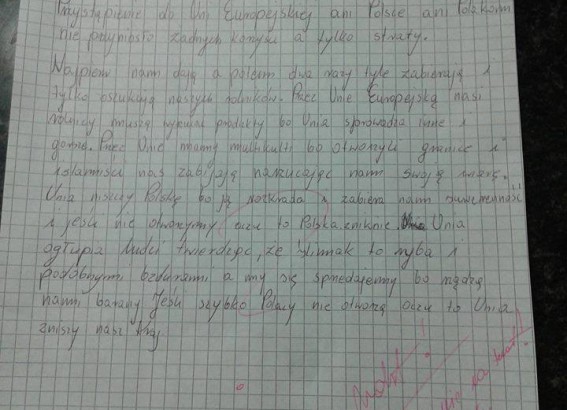 Przystąpienie do Unii Europejskiej ani Polsce ani Polakom
nie przyniosło żadnych korzyści a tylko straty.
Najpierw nam dają a potem dwa razy tyle zabierają i
tylko oszukują naszych rolników. Przez Unię Europejską nasi
rolnicy muszą produkty bo Unia sprowadza inne i
gorsze. Przez Unię mamy multikulti bo otworzyli granice i
islamiści nas zabijają narzucając nam swoją wiarę.
Unia niszczy Polskę bo ją rozkrada i zabiera nam suwerenność
i jeśli nie otworzymy oczu to Polska zniknie. Unia
ogłupia ludzi twierdząc, że ślimak to ryba i
podobnymi bzdurami a my się sprzedajemy bo rządzą
nami barany Jeśli szybko Polacy nie otworzą oczu to Unia
zniszy nasz kraj